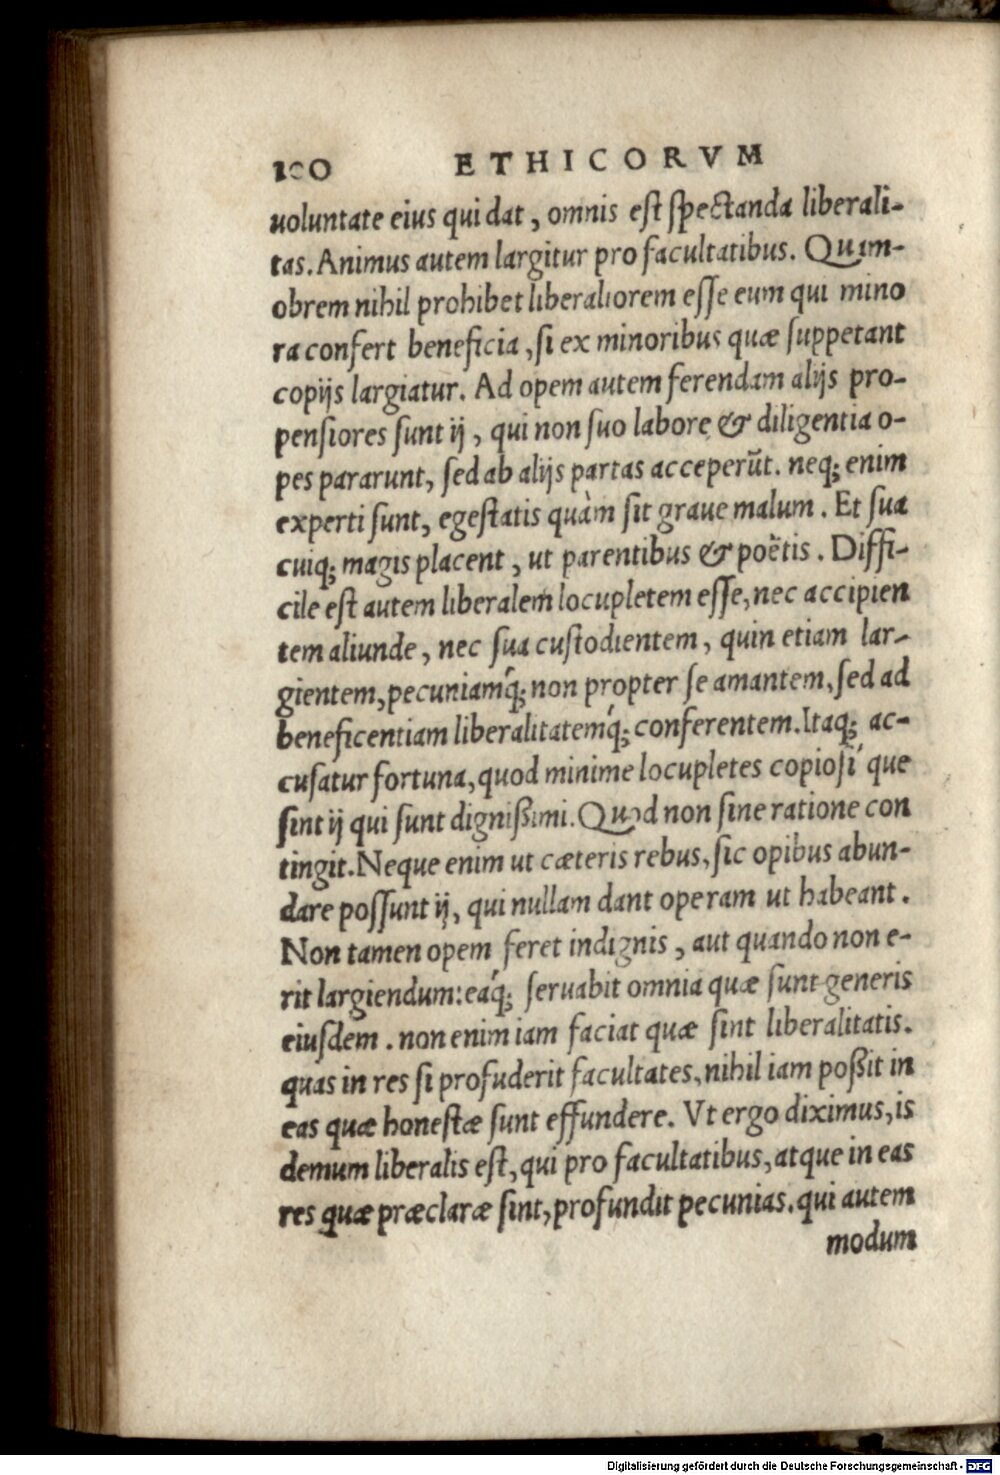 100 ETHICORVM
uoluntate eius qui dat, omnis est spectanda liberali-
tas. Animus autem largitur pro facultatibus. Quam-
obrem nihil prohibet liberaliorem esse eum qui mino
ra confert beneficia, si ex minoribus quæ suppetant
copijs largiatur. Ad opem autem ferendam alijs pro-
pensiores sunt ij, qui non suo labore & diligentia o-
pes pararunt, sed ab alijs partas acceperūt. neq; enim
experti sunt, egestatis quàm sit graue malum. Et sua
cuiq; magis placent, ut parentibus & poëtis. Diffi-
cile est autem liberalem locupletem esse, nec accipien
tem aliunde, nec sua custodientem, quin etiam lar-
gientem, pecuniamq́; non propter se amantem, sed ad
beneficentiam liberalitatemq́; conferentem. Itaq; ac-
cusatur fortuna, quod minime locupletes copiosi´que
sint ij qui sunt dignißimi. Quod non sine ratione con
tingit. Neque enim ut cæteris rebus, sic opibus abun-
dare possunt ij, qui nullam dant operam ut habeant.
Non tamen opem feret indignis, aut quando non e-
rit largiendum: eaq́; seruabit omnia quæ sunt generis
eiusdem. non enim iam faciat quæ sint liberalitatis.
quas in res si profuderit facultates, nihil iam poßit in
eas quæ honestæ sunt effundere. Vt ergo diximus, is
demum liberalis est, qui pro facultatibus, atque in eas
res quæ præclaræ sint, profundit pecunias. qui autem
modum
Digitalisierung gefördert durch die Deutsche Forschungsgemeinschaft - DFG